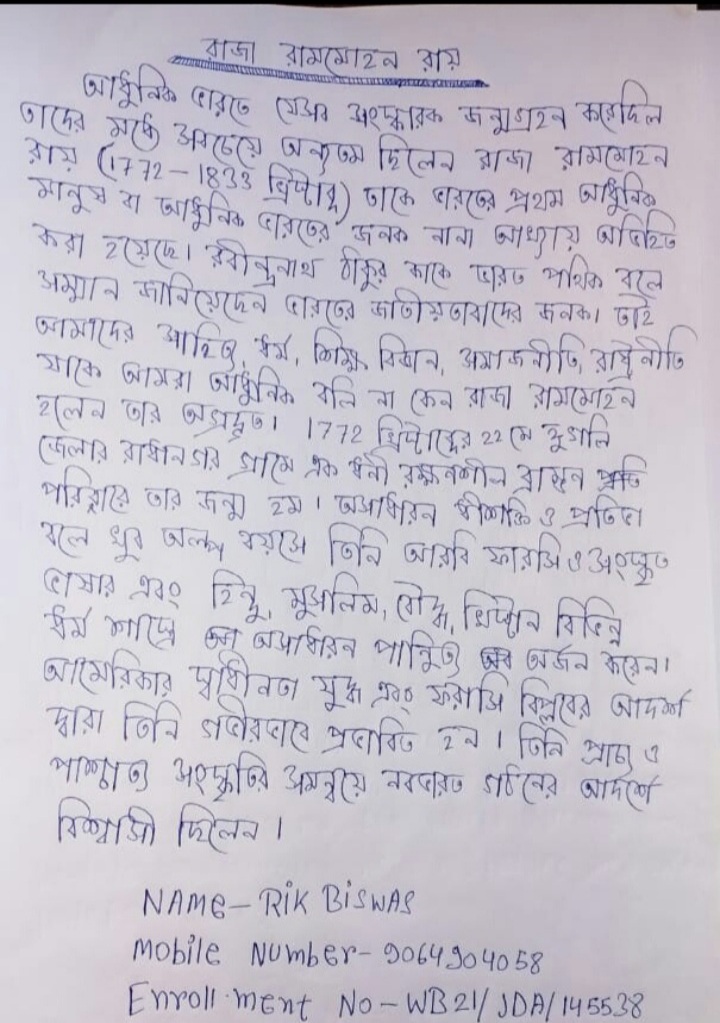 রাজা রামমোহন রায়
আধুনিক ভারতে যেসব সংস্কারক জন্মগ্রহন করেছিল
তাদের মধ্যে সবচেয়ে অন্যতম ছিলেন রাজা রামমোহন
রায় (1772 – 1833 খ্রিষ্টাব্দ) তাকে ভারতের প্রথম আধুনিক
মানুষ বা আধুনিক ভারতের জনক নানা আখ্যায় অভিহিত
করা হয়েছে। রবীন্দ্রনাথ ঠাকুর তাকে ভারত পথিক বলে
সম্মান জানিয়েছেন ভারতের জাতীয়তাবাদের জনক। তাই
আমাদের সাহিত্য, ধর্ম, শিক্ষা বিজ্ঞান, সমাজনীতি, রাষ্ট্রনীতি
যাকে আমরা আধুনিক বলি না কেন রাজা রামমোহন
হলেন তার অগ্রদূত। 1772 খ্রিষ্টাব্দের 22 মে হুগলি
জেলার রাধানগর গ্রামে এক ধনী রক্ষনশীল ব্রাহ্মন
পরিবারে তার জন্ম হয়। অসাধারন ধীশক্তি ও প্রতিভা
বলে খুব অল্প বয়সে তিনি আরবি ফারসি ও সংস্কৃত
ভাষার এবং হিন্দু, মুসলিম, বৌদ্ধ, খ্রিষ্টান বিভিন্ন
ধর্ম শাস্ত্রে অসাধারন পান্ডিত্য অর্জন করেন।
আমেরিকার স্বাধীনতা যুদ্ধ এবং ফরাসি বিপ্লবের আদর্শ
দ্বারা তিনি গভীরভাবে প্রভাবিত হন। তিনি প্রাচ্য ও
পাশ্চাত্য সংস্কৃতির সমন্বয়ে নবভারত গঠনের আদর্শে
বিশ্বাসী ছিলেন।
NAMe – RiK BiSWAS
Mobile Number - 9064904058
Enroll·ment No – WB21/JDA/145538